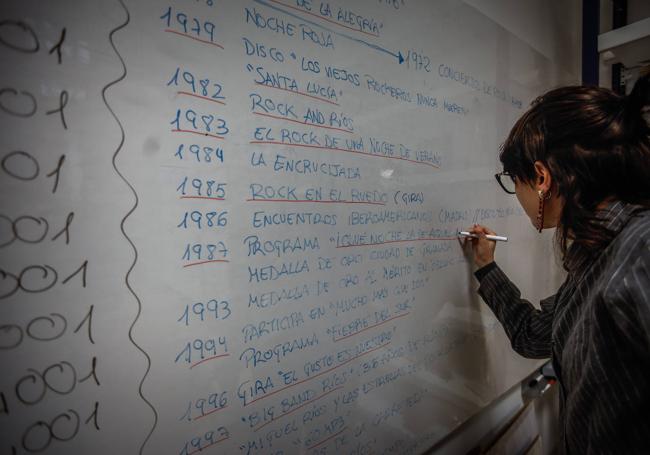 DE LA ALEGRÍA"
1979 NOCHE ROJA
1972 CONCIERTO DE
DISCO "LOS VIEJOS ROCKEROS NUNCA MUEREN"
1982 "SANTA LUCÍA"
ROCK AND RÍOS
1983 EL ROCK DE UNA NOCHE DE VERANO
1984 LA ENCRUCIJADA
1985 ROCK EN EL RUEDO (GIRA)
1986 ENCUENTROS IBEROAMERICANOS
1987 PROGRAMA "¡QUÉ NOCHE LA DE AQUEL
MEDALLA DE ORO CIUDAD DE GRANADA
MEDALLA DE ORO AL MÉRITO EN
1993 PARTICIPA EN "MUCHO MÁS QUE DOS"
1994 PROGRAMA "FIEBRE DEL SUR"
1996 GIRA "EL GUSTO ES NUESTRO"
1997 "BIG BAND RÍOS"
"MIGUEL RÍOS Y LAS ESTRELLAS DEL
"60 MP3
001
001
001
001
001
001
001
001